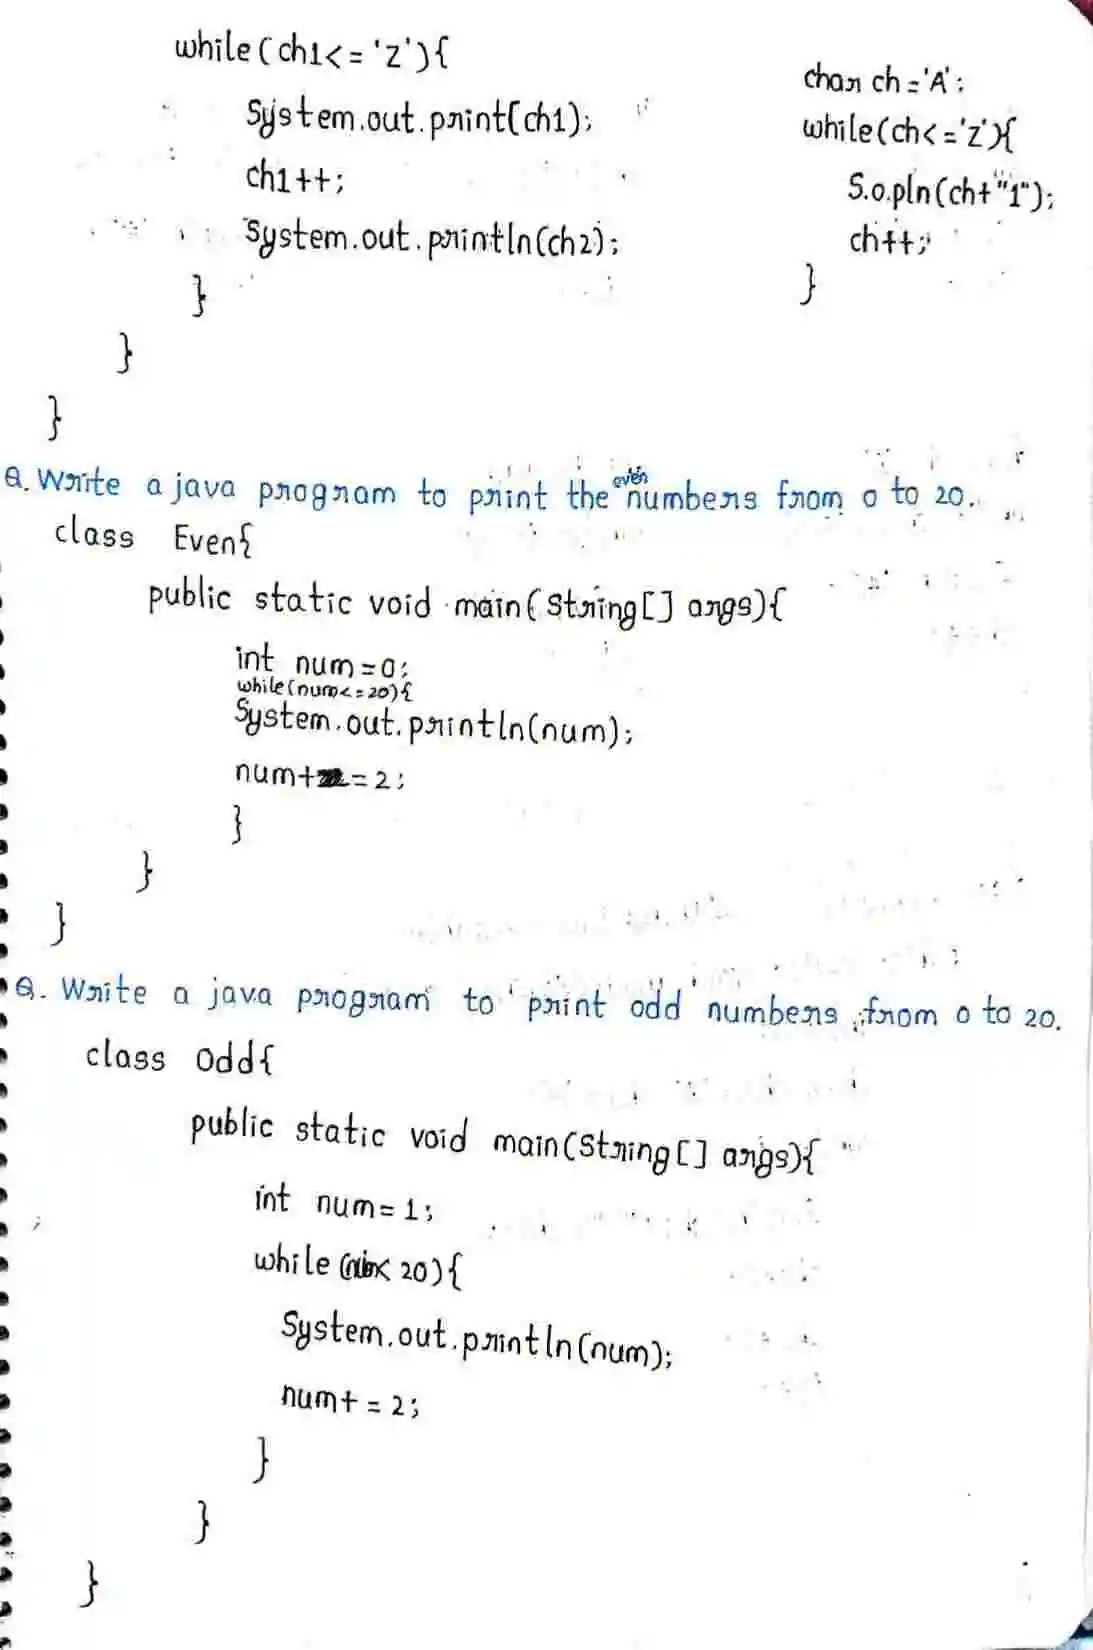 while(ch1<='Z'){
System.out.print(ch1);
ch1++;
System.out.println(ch2);
}
}
}
char ch='A';
while(ch<='Z'){
S.o.pln(ch+"1");
ch++;
}
Q. Write a java program to print the even numbers from 0 to 20.
class Even{
public static void main(String[] args){
int num=0;
while(num<=20){
System.out.println(num);
num+=2;
}
}
}
Q. Write a java program to print odd numbers from 0 to 20.
class Odd{
public static void main(String[] args){
int num=1;
while(< 20){
System.out.println(num);
num+=2;
}
}
}